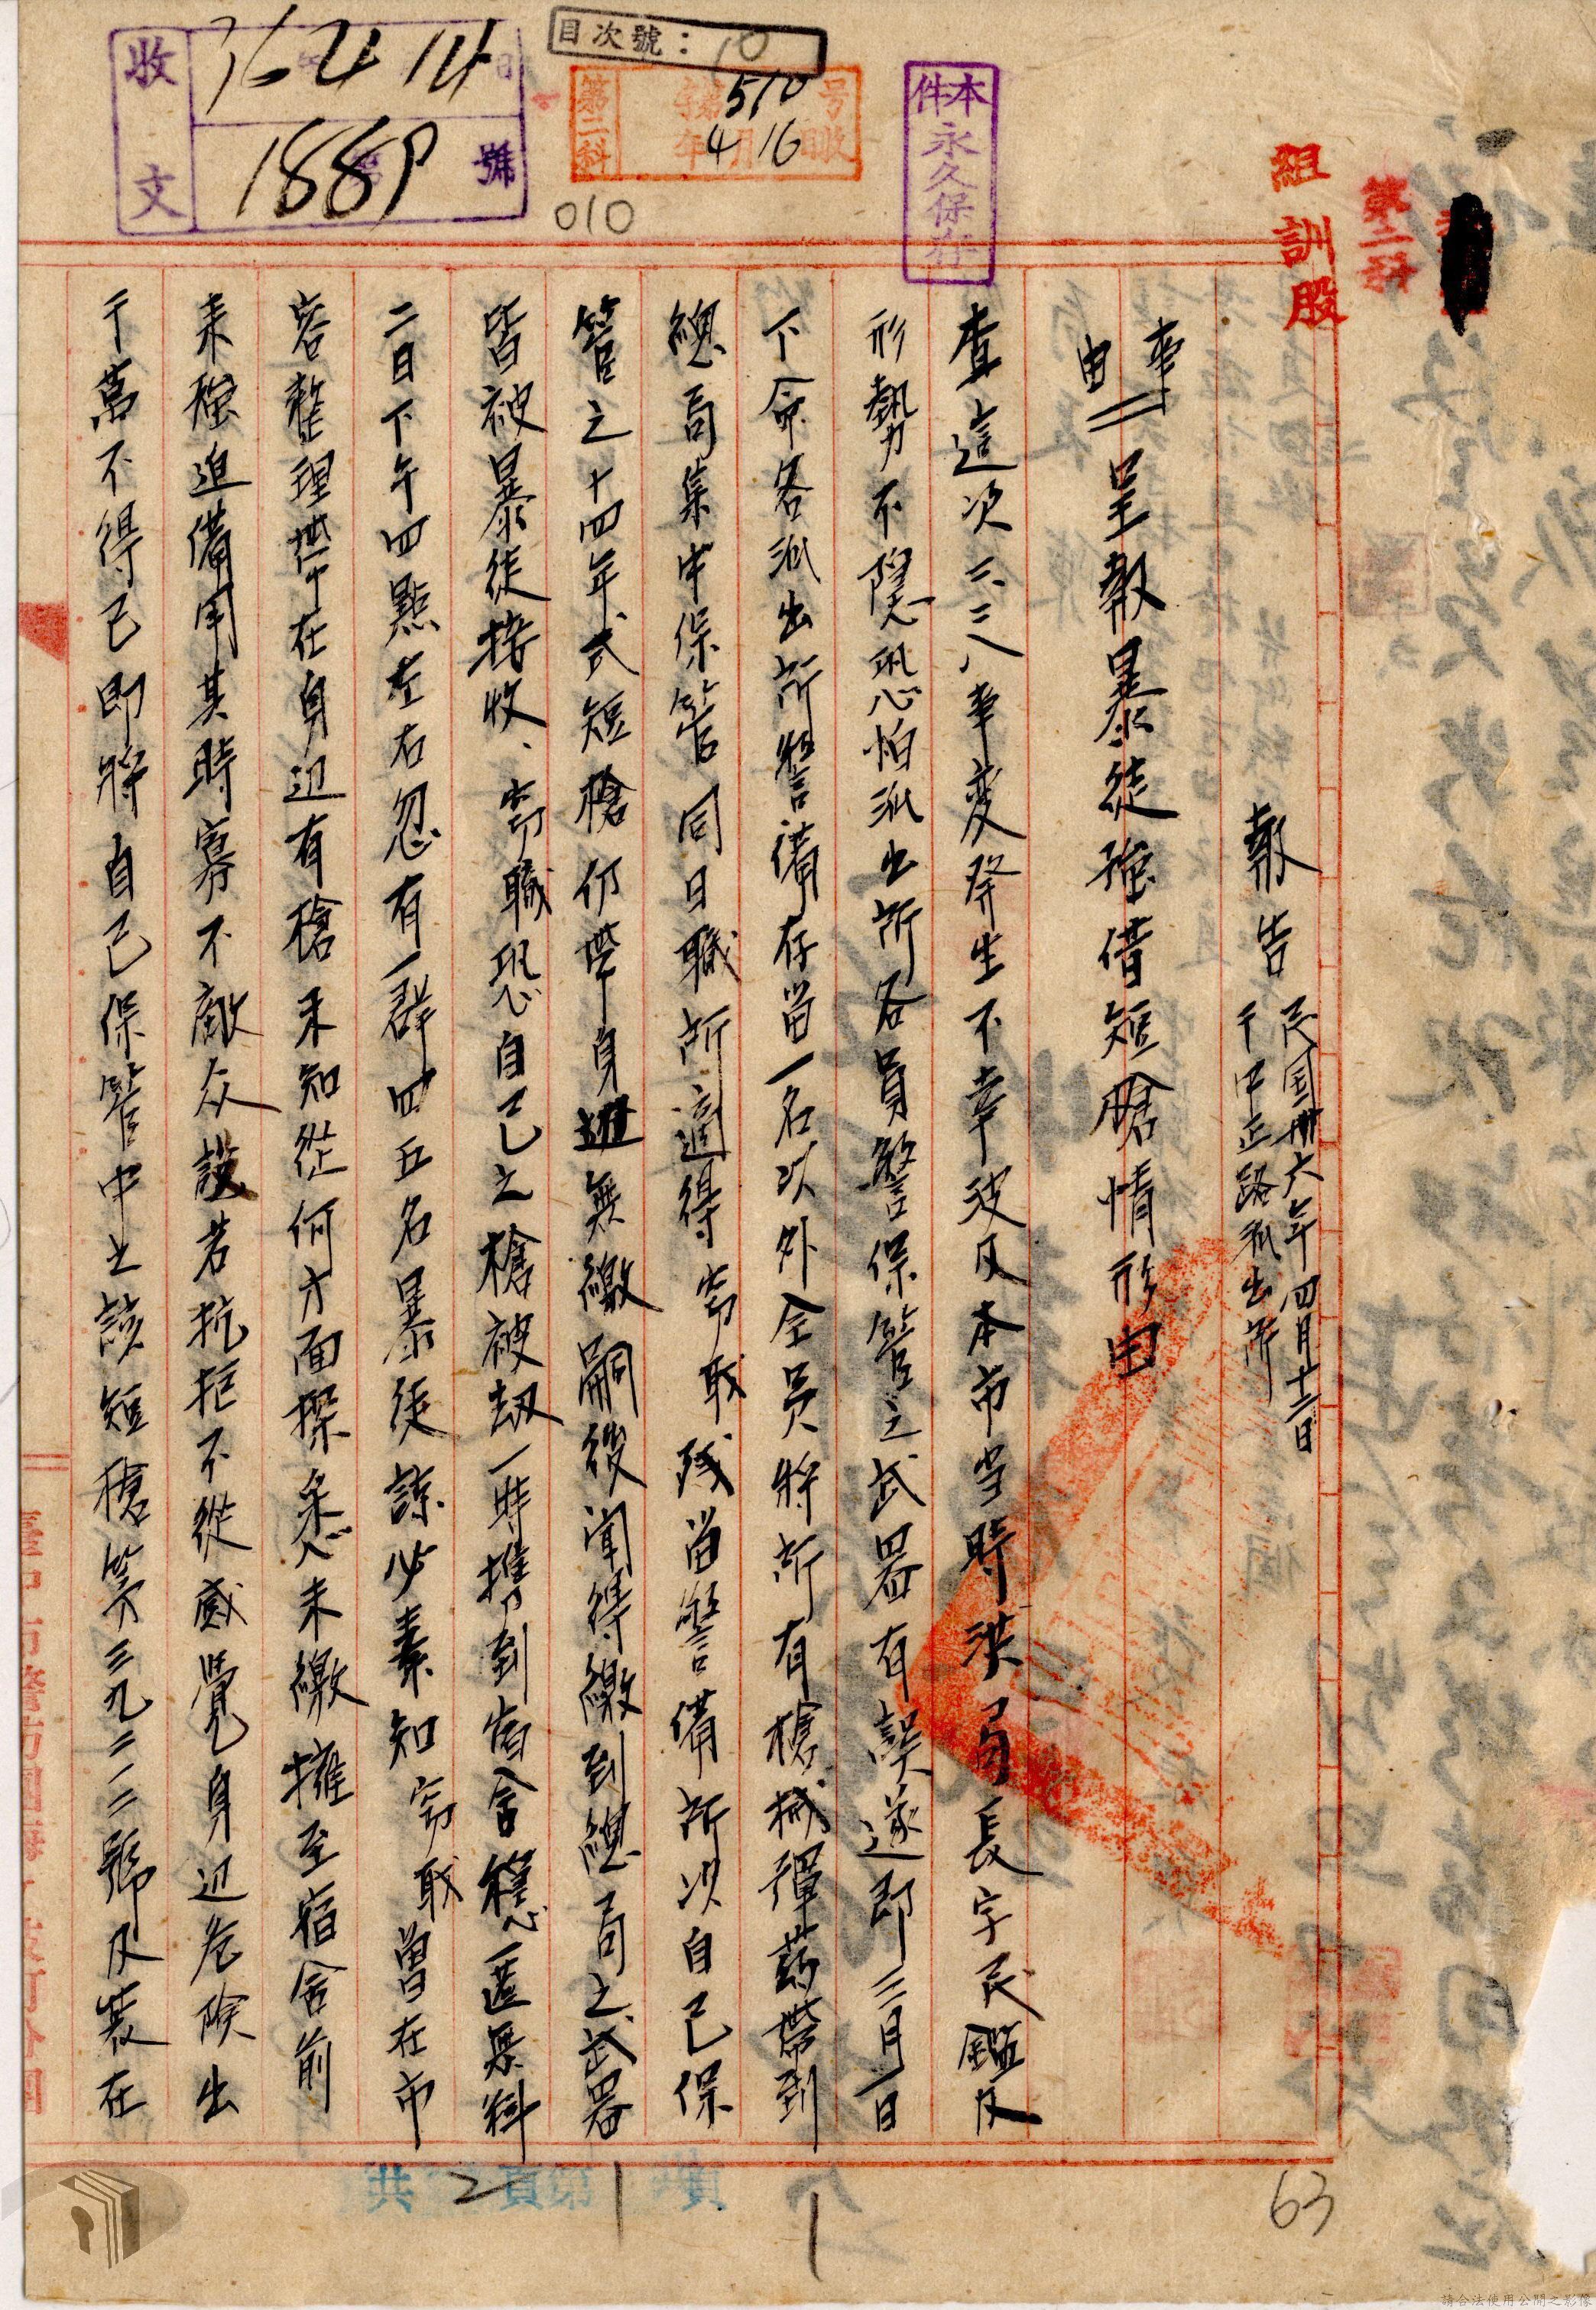 目次號：10
收文
36 4 14
1889 號
第二科
字第510号
年4月16日收
010
本件永久保存
組訓股
報告 民国卅六年四月十二日
于中正路派出所
事由＝呈報暴徒強借短槍情形由
查這次二二八事変発生不幸波及本市当時洪局長字民鑑及
形勢不隱恐怕派出所各員警保管之武器有誤遂即三月一日
下命各派出所警備存留一名以外全員將所有槍械彈葯帶到
總局集中保管同日職所適得 窃职 殘留警備所以自己保
管之十四年式短槍仍帶身邊無繳嗣後闻得繳到總局之武器
皆被暴徒接收、窃職恐自己之槍被刼一時携到宿舍穩匿無料
二日下午四點左右忽有一群四五名暴徒諒必素知 窃职 曽在市
容整理帶在身辺有槍未知從何方面探悉未繳擁至宿舍前
来強迫備用其時寡不敵众設若抗拒不從感覺身辺危險出
于萬不得已即將自己保管中之該短槍第三九二二號及裝在
共2頁第1頁
1
63
請合法使用公開之影像